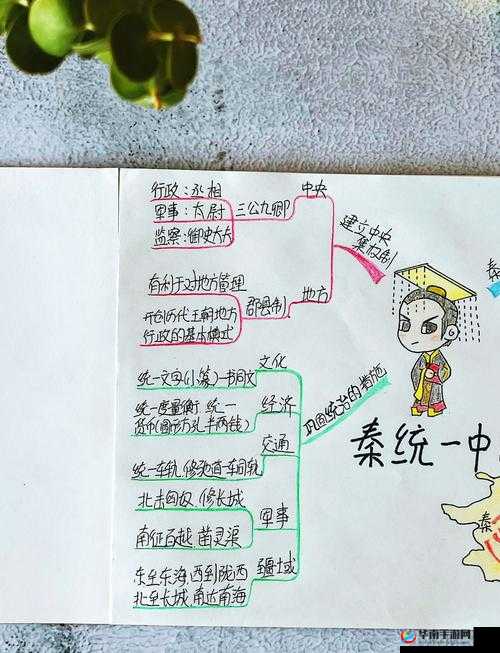 行政:丞相
军事:太尉
监察:御史大夫
三公九卿
中央
建立中央
集权制
有利于对地方管理
开创历代王朝地方
行政的基本模式
郡县制
地方
文化
统一文字(小篆)一书同文
经济
统一度量衡 统一
货币(圆形方孔半两钱)
交通
统一车轨,修驰道一车同轨
北击匈奴,修长城
军事
南征百越,凿灵渠
疆域
东至东海,西到陇西
北至长城,南达南海
巩固统治的措施
秦统一中
秦
秦
华南手游网